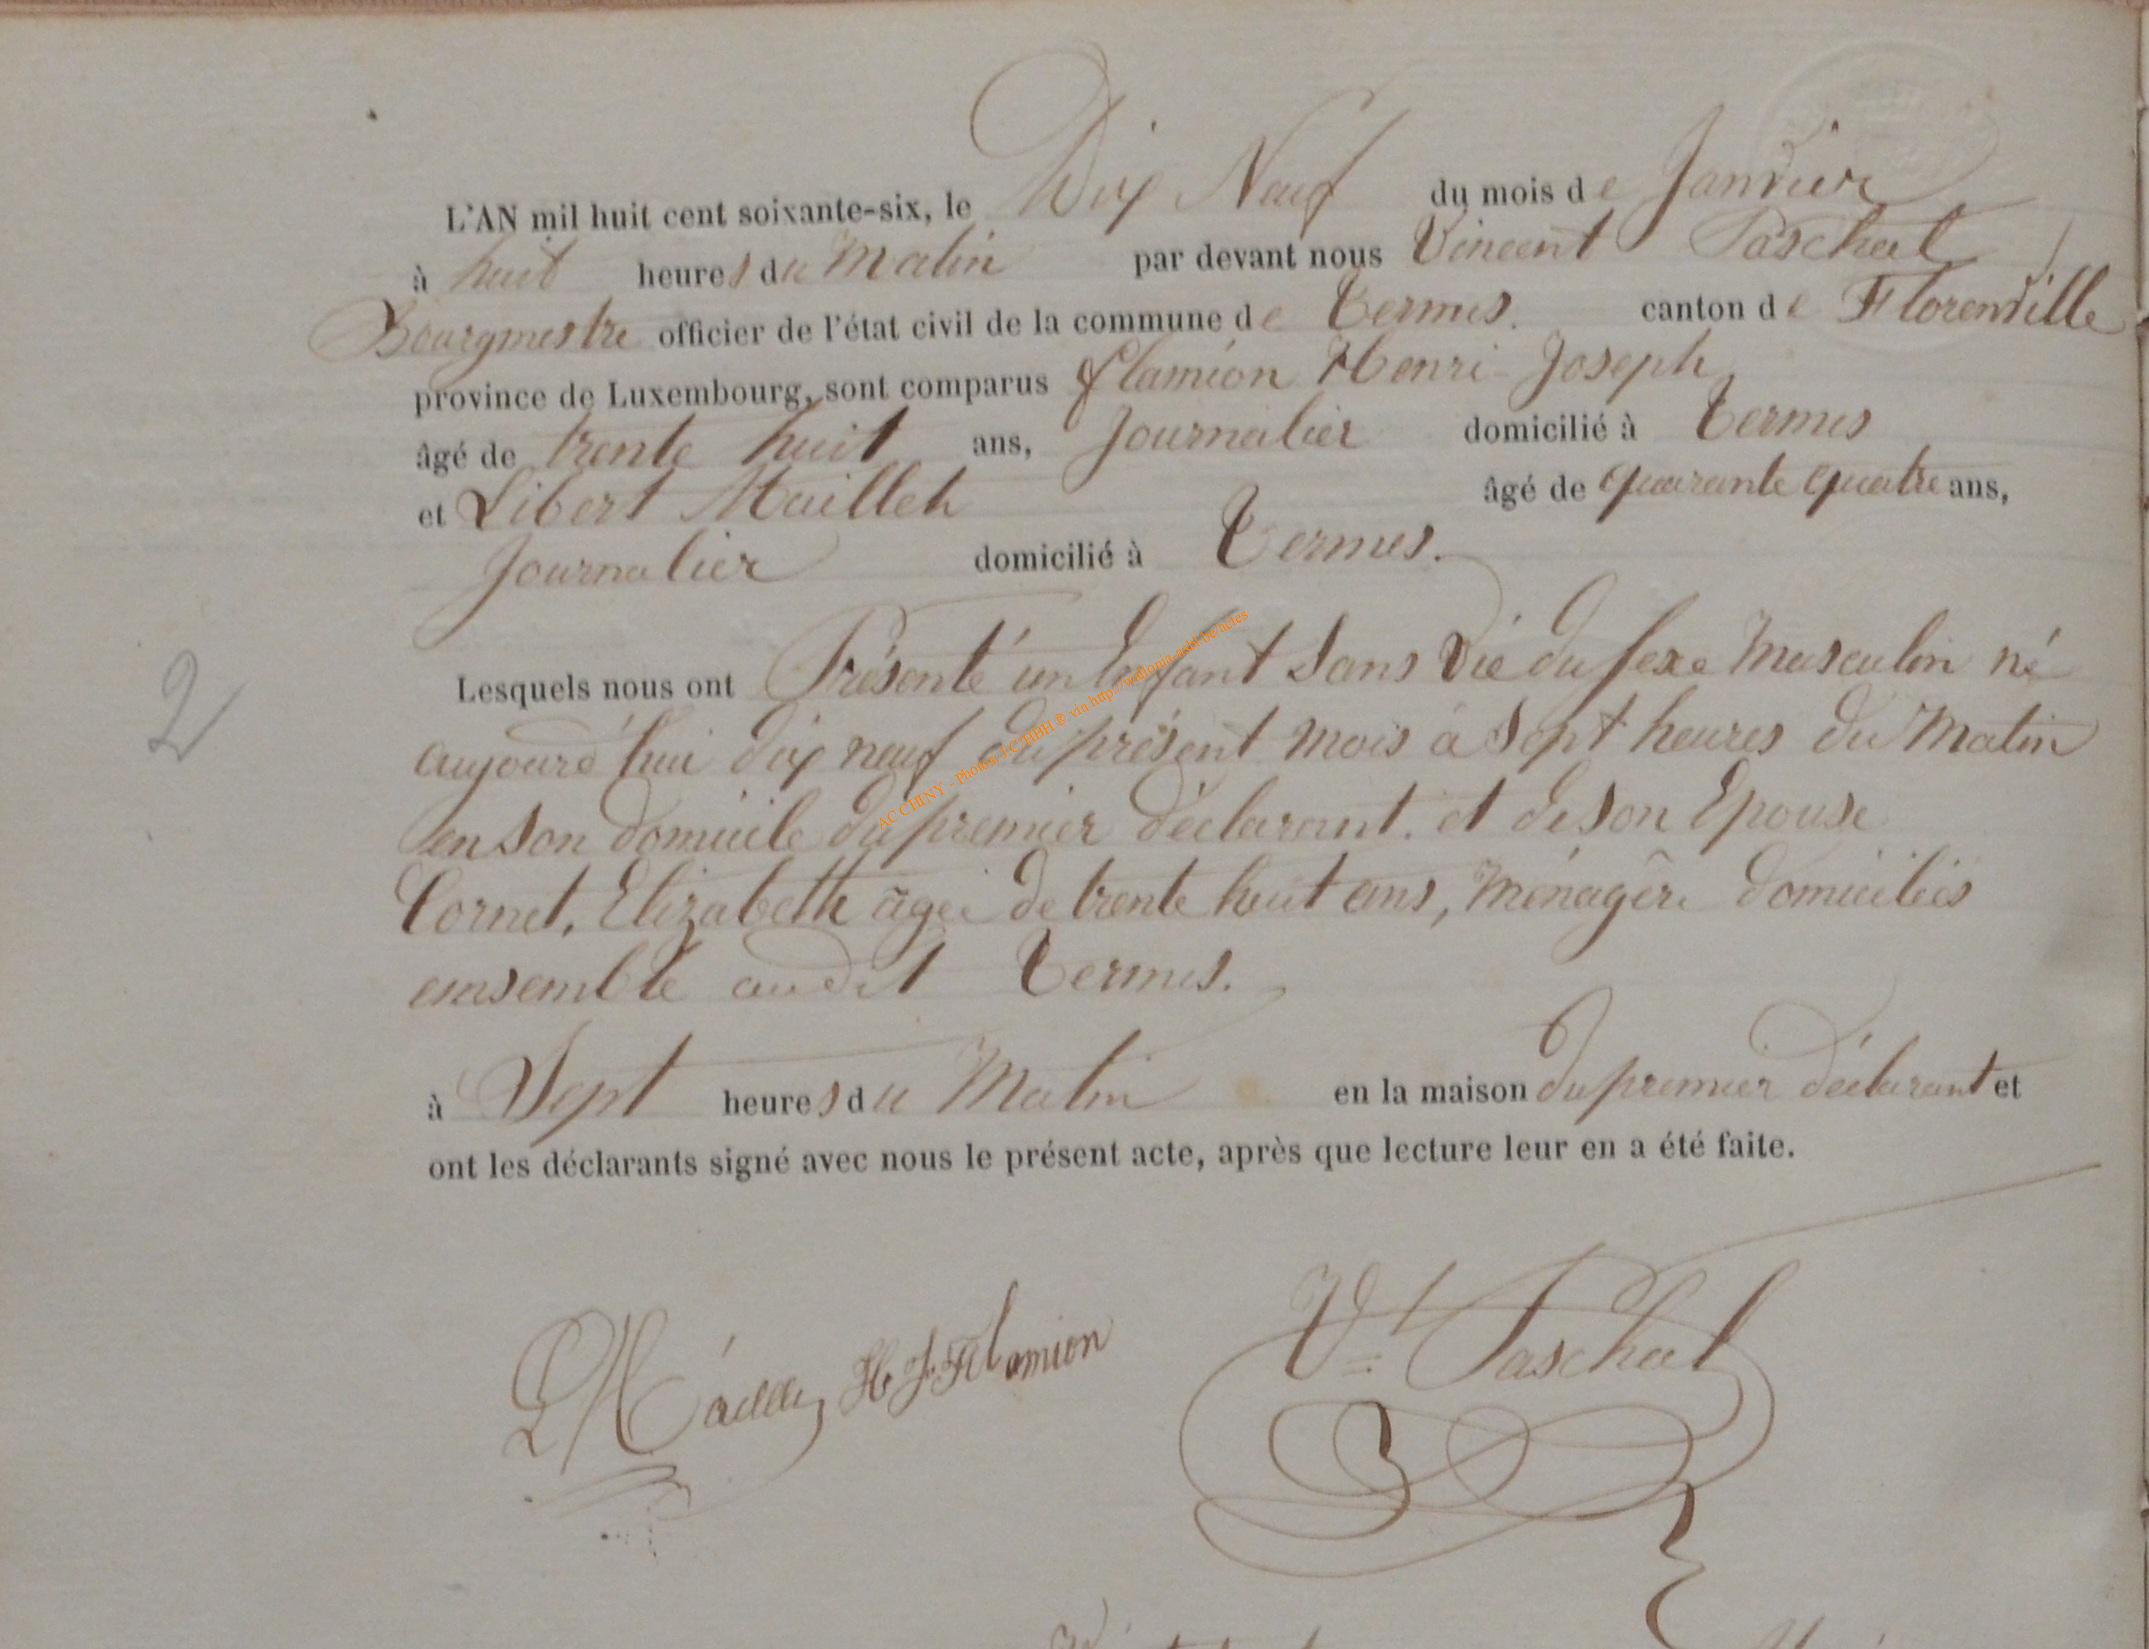 L'AN mil huit cent soixante-six, le Dix Neuf du mois de Janvier
à huit heures du Matin par devant nous Vincent Paschal
Bourgmestre officier de l'état civil de la commune de Termes. canton de Florenville
province de Luxembourg, sont comparus Flamion Henri-Joseph
âgé de trente huit ans, Journalier domicilié à Termes
et Libert Maillet âgé de quarante quatre ans,
Journalier domicilié à Termes.
2
Lesquels nous ont Présenté un Enfant Sans Vie du sexe Masculin né
aujourd'hui dix neuf du présent mois à Sept heures du Matin
en son domicile du premier déclarant. et de son Epouse
Cornet, Elizabeth agée de trente huit ans, Ménagère domiciliés
ensemble audit Termes.
à Sept heures du Matin en la maison du premier déclarant et
ont les déclarants signé avec nous le présent acte, après que lecture leur en a été faite.
H J Flamion Vt Paschal
AC CHINY - Photos J-C HBH ® via http://wallonia-asbl.be/actes